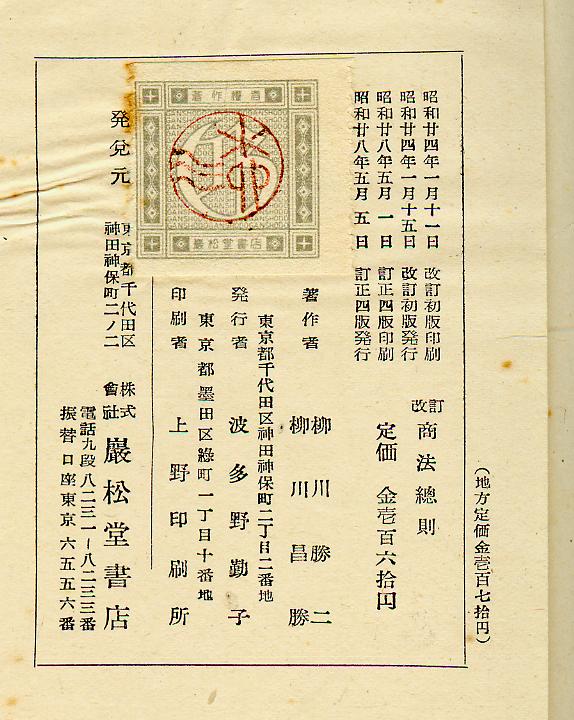 昭和廿四年一月十一日　改訂初版印刷
昭和廿四年一月十五日　改訂初版発行
昭和廿八年五月　一日　訂正四版印刷
昭和廿八年五月　五日　訂正四版発行
（地方定価金壱百七拾円）
改訂　商法總則
定価　金壱百六拾円
著作者　柳川勝二
柳川昌勝
東京都千代田区神田神保町二丁目二番地
発行者　波多野勤子
東京都墨田区綠町一丁目十番地
印刷者　上野印刷所
発兌元
東京都千代田区
神田神保町二ノ二
株式会社　巖松堂書店
電話九段八二三一〜八二三三番
振替口座東京六五五六番
巖松堂書店